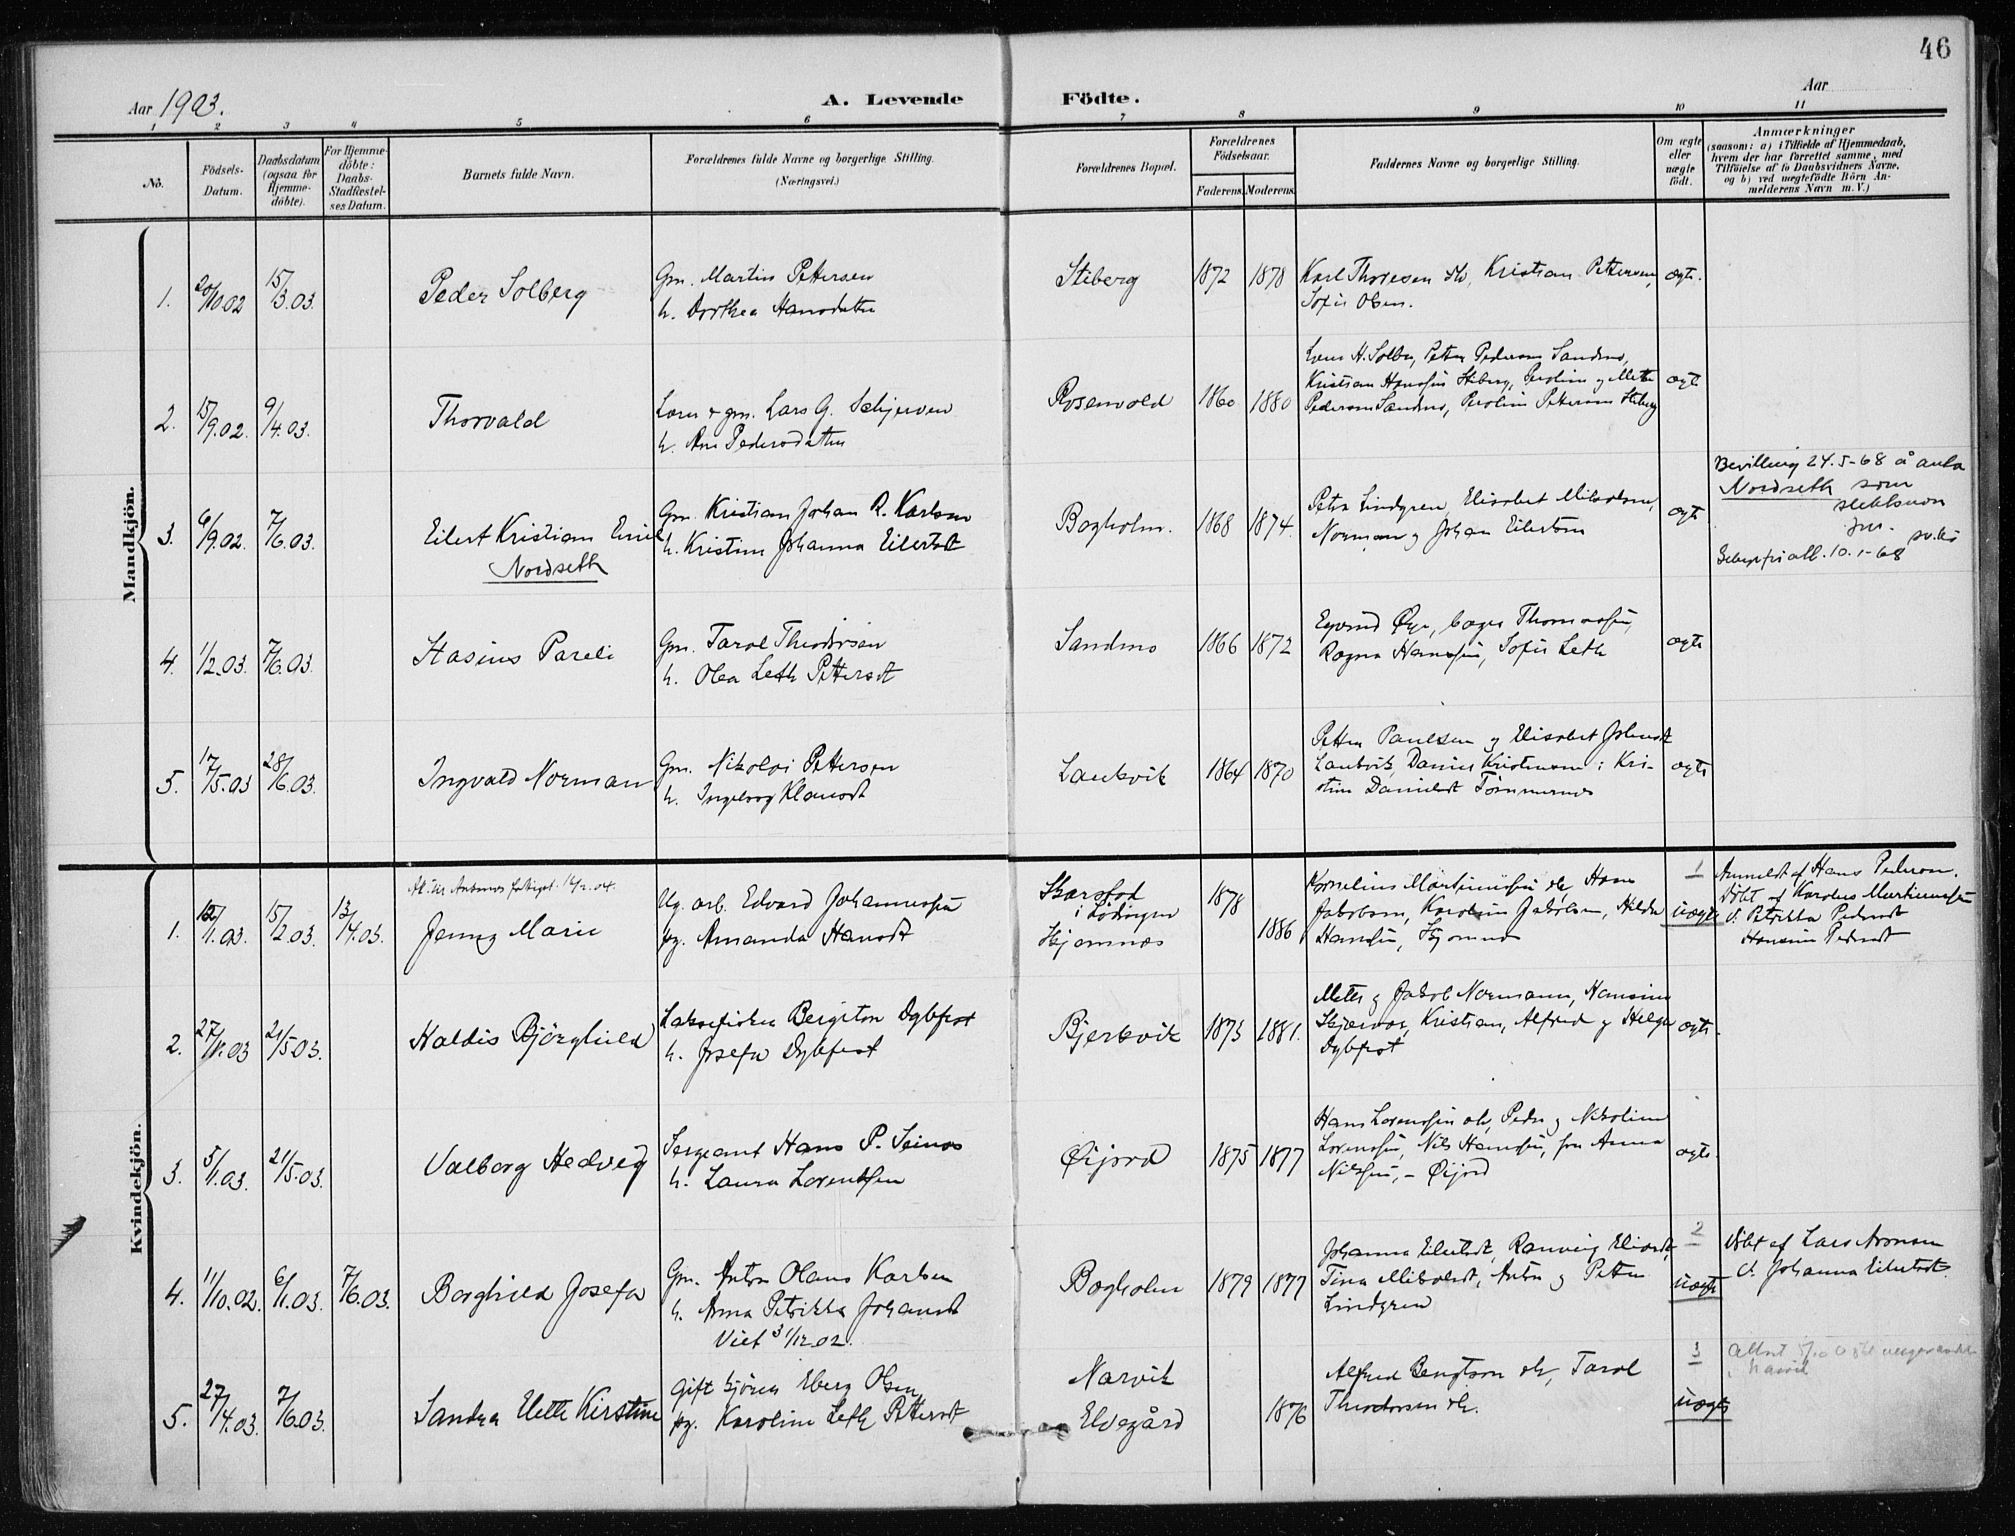 46
Aar 1903.
A. Levende Födte.
Aar
1 2 3 4 5 6 7 8 9 10 11
No.
Födsels-
Datum.
Daabsdatum
(ogsaa for
Hjemme-
döbte).
For Hjemme-
döbte:
Daabs-
Stadfæstel-
ses Datum.
Barnets fulde Navn.
Forældrenes fulde Navne og borgerlige Stilling.
(Næringsvei.)
Forældrenes Bopæl.
Forældrenes
Fødselsaar.
Faderens. Moderens.
Faddernes Navne og borgerlige Stilling.
Om ægte
eller
uægte
født.
Anmærkninger
(saasom: a) i Tilfælde af Hjemmedaab,
hvem der har forrettet samme, med
Tilföielse af to Daabsvidners Navne,
og b) ved uægtefödte Börn An-
melderens Navn m. V.)
Mandkjön.
1. 20/10.02 15/3.03. Peder Solberg
Gm. Martin Pettersen
h. Dorthea Hansdatter
Stiberg 1872 1878
Karl Thoresen Kristian Pettersen,
Sofie Olsen.
ægte.
2. 15/9.02. 9/4.03. Thorvald
gm. Lars G. Schjerven
h. Ane Pedersdatter
Rosenvold 1860 1880
H. Solberg, Petter Pedersen Sandmo,
Kristian Hanssen Stiberg, Peroline og Mette
Pedersen Sandmo, Peroline Pettersen Stiberg
ægte
3. 6/9.02. 7/6.03. Eilert Kristian Emil
Nordseth
Gm. Kristian Johan R. Karlsen
h. Kristine Johanna Eilertsdt
Bogholm. 1868 1874.
Petra Lindgren, Elisabet
Norman og Johan Eilertsen
ægte
Bevilling 24.5-68 å anta
Nordseth som
slektsnavn
10.1-68
4. 1/2.03. 7/6.03. Hasius Pareli
Gm. Tarol Theodorsen
h. Olea Leth Pettersdt
Sandmo 1866 1872
Eyvind Øye, Thomassen,
Ragna Hanssen, Sofie Leth
ægte
5. 17/5.03 28/6.03. Ingvald Norman
Gm. Nikolai Pettersen
h. Ingeborg Klausdt
Lankvik 1864 1870
Petter Paulsen og Elisabet Johnsdt
Lankvik, Daniel Kristensen, Kri-
stine Danielsdt Tömmernes
ægte
Kvindekjön.
1. 12/1.03. 15/2.03. 13/4.03.
Jenny Marie
Ug. arb. Edvard Johannessen
pg. Amanda Hansdt
Skarstad
i Lödingen
Skjomnes
1878 1886
Kornelius Martinussen Hans
Jakobsen, Karoline Jakobsen, Hilda
Hanssen, Skjomnes
1 uægte
Anmeldt af Hans Pedersen.
Döbt af Karolus Martinussen
v. Petrikka Pedersdt
Hansine Pedersdt
2. 27/1.03 21/5.03. Haldis Björghild
Bergiton Dybfest
h. Josefa Dybfest
Bjerkvik 1873 1881.
Mette og Jakob Normann, Hansine
Skjærvor, Kristian, Alfred og Helga
Dybfest
ægte.
3. 5/1.03. 21/5.03. Valborg Hedvig
Sergeant Hans P. Seines
h. Laura Lorentsen
Öijord 1875 1877
Hans Lorentsen Peder og Nikoline
Lorentsen, Nils Hanssen, fru Anna
Nilssen, - Öijord
ægte.
4. 11/10.02. 6/1.03. 7/6.03. Borghild Josefa
Gm. Anton Olaus Karlsen
h. Anna Petrikka Johansdt
Viet 31/12 02.
Bogholm 1879 1877
Johanna Eilertsdt, Ranveig Eliasdt
Tina Anton og Petter
Lindgren
2 uægte
Döbt af Lars Aronsen
v. Johanna Eilertsdt
5. 27/4.03. 7/6.03. Sandra Elette Kirstine
Gift Eberg Olsen,
pg. Karoline Leth Pettersdt
Narvik
Elvegård
1876
Alfred Bengtson Tarol
Theodorsen
3 uægte
Narvik